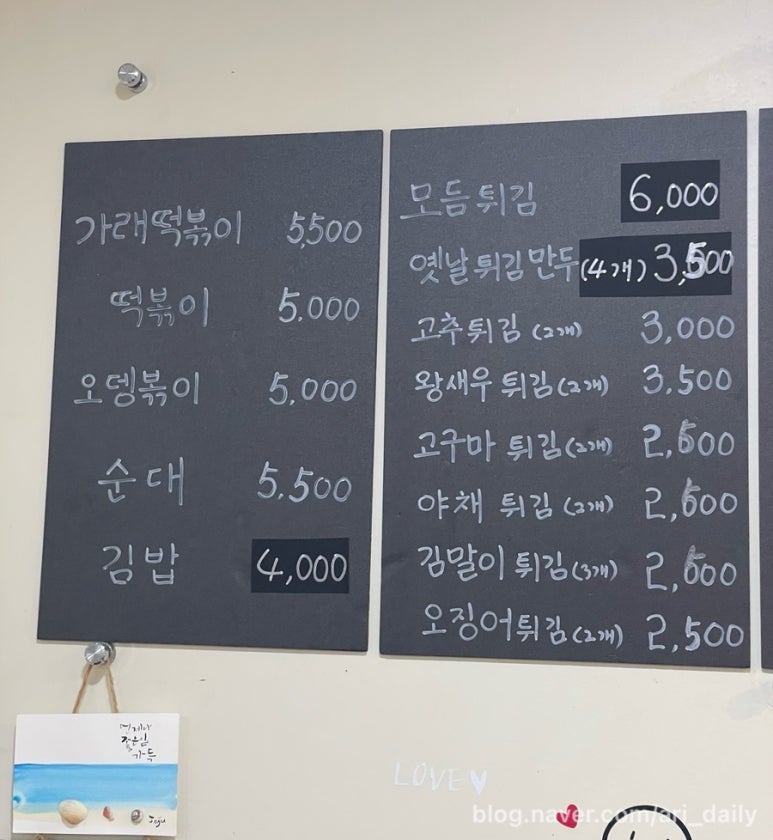 가래떡볶이 5,500
떡볶이 5,000
오뎅볶이 5,000
순대 5,500
김밥 4,000
모듬튀김 6,000
옛날튀김만두(4개) 3,500
고추튀김 (2개) 3,000
왕새우 튀김(2개) 3,500
고구마 튀김(2개) 2,500
야채 튀김 (2개) 2,500
김말이 튀김(3개) 2,500
오징어튀김(2개) 2,500
언제나
좋은일
가득
Jeju
LOVE♥
blog.naver.com/ari_daily